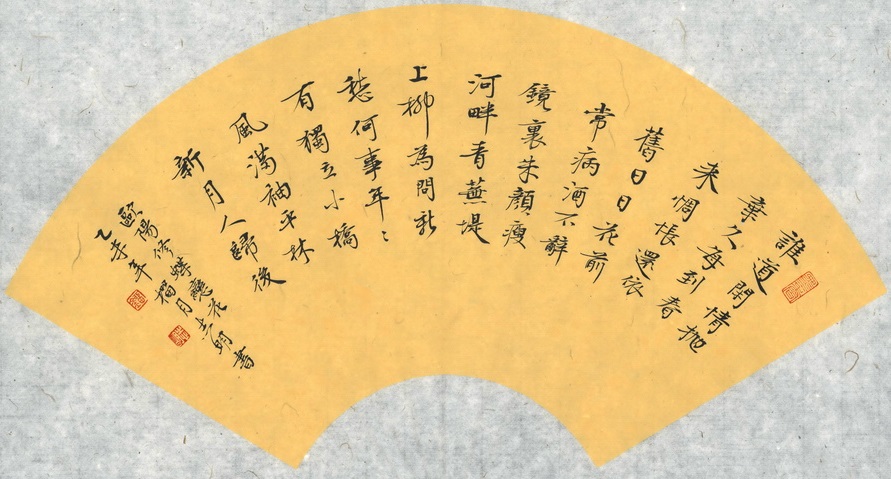 誰道閒情抛
棄久每到春
来惆悵還依
舊日日花前
常病酒不辭
鏡裏朱顏瘦
河畔青蕪堤
上柳為問新
愁何事年々
有獨立小橋
風滿袖平林
新月人歸後
歐陽修蝶戀花 書
乙未年榴月